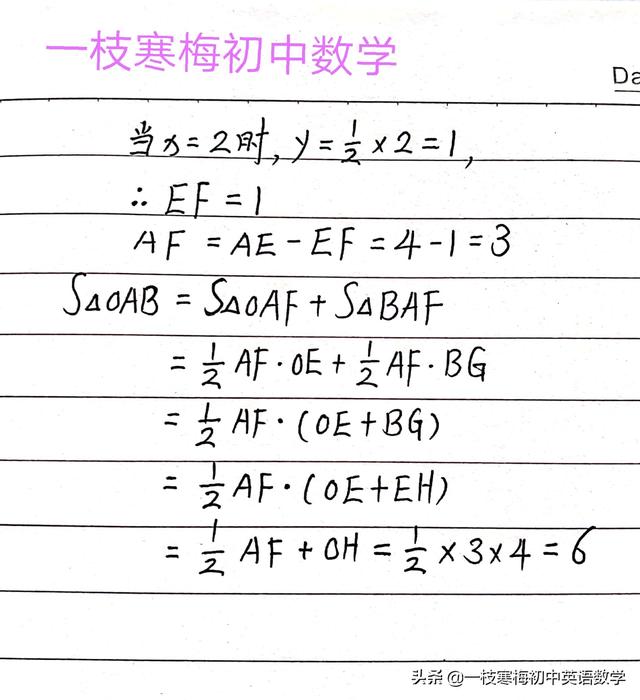 一枝寒梅初中数学
Da
当x=2时, y=½×2=1,
∴ EF=1
AF = AE-EF=4-1=3
S△OAB = S△OAF+S△BAF
= ½ AF·OE+½ AF·BG
= ½ AF·(OE+BG)
= ½ AF·(OE+EH)
= ½ AF+OH=½×3×4=6
头条 @一枝寒梅初中英语数学